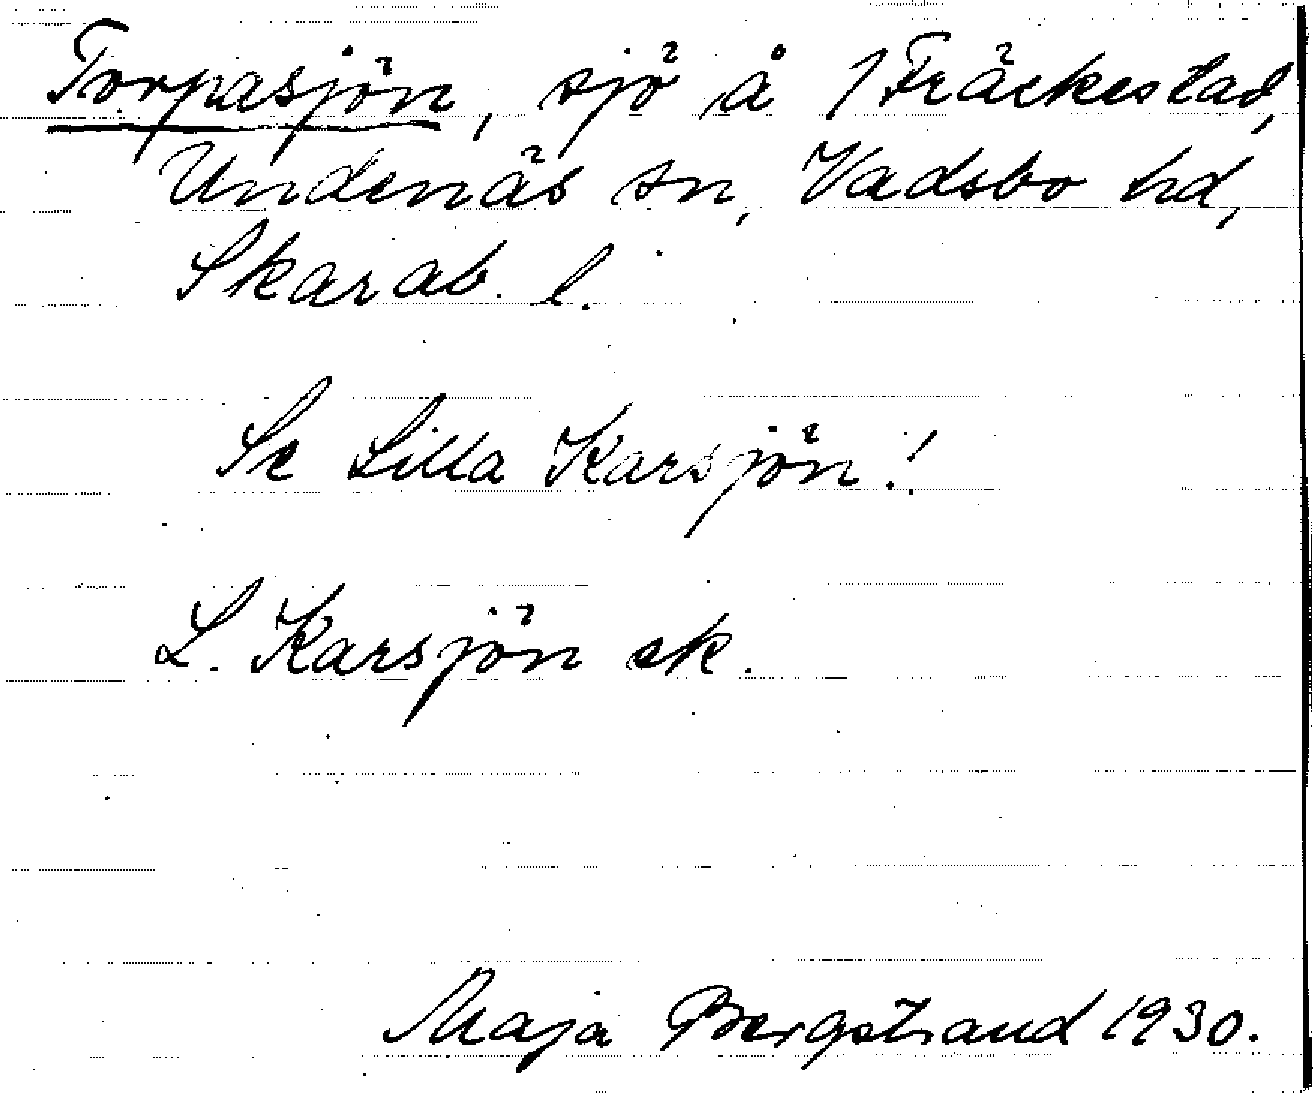 Torpasjön, sjö å 1 Fräckestad,
Undenäs sn, Vadsbo hd,
Skarab. l.
Se Lilla Karsjön!
L. Karsjön ek.
Maja Bergstrand 1930.